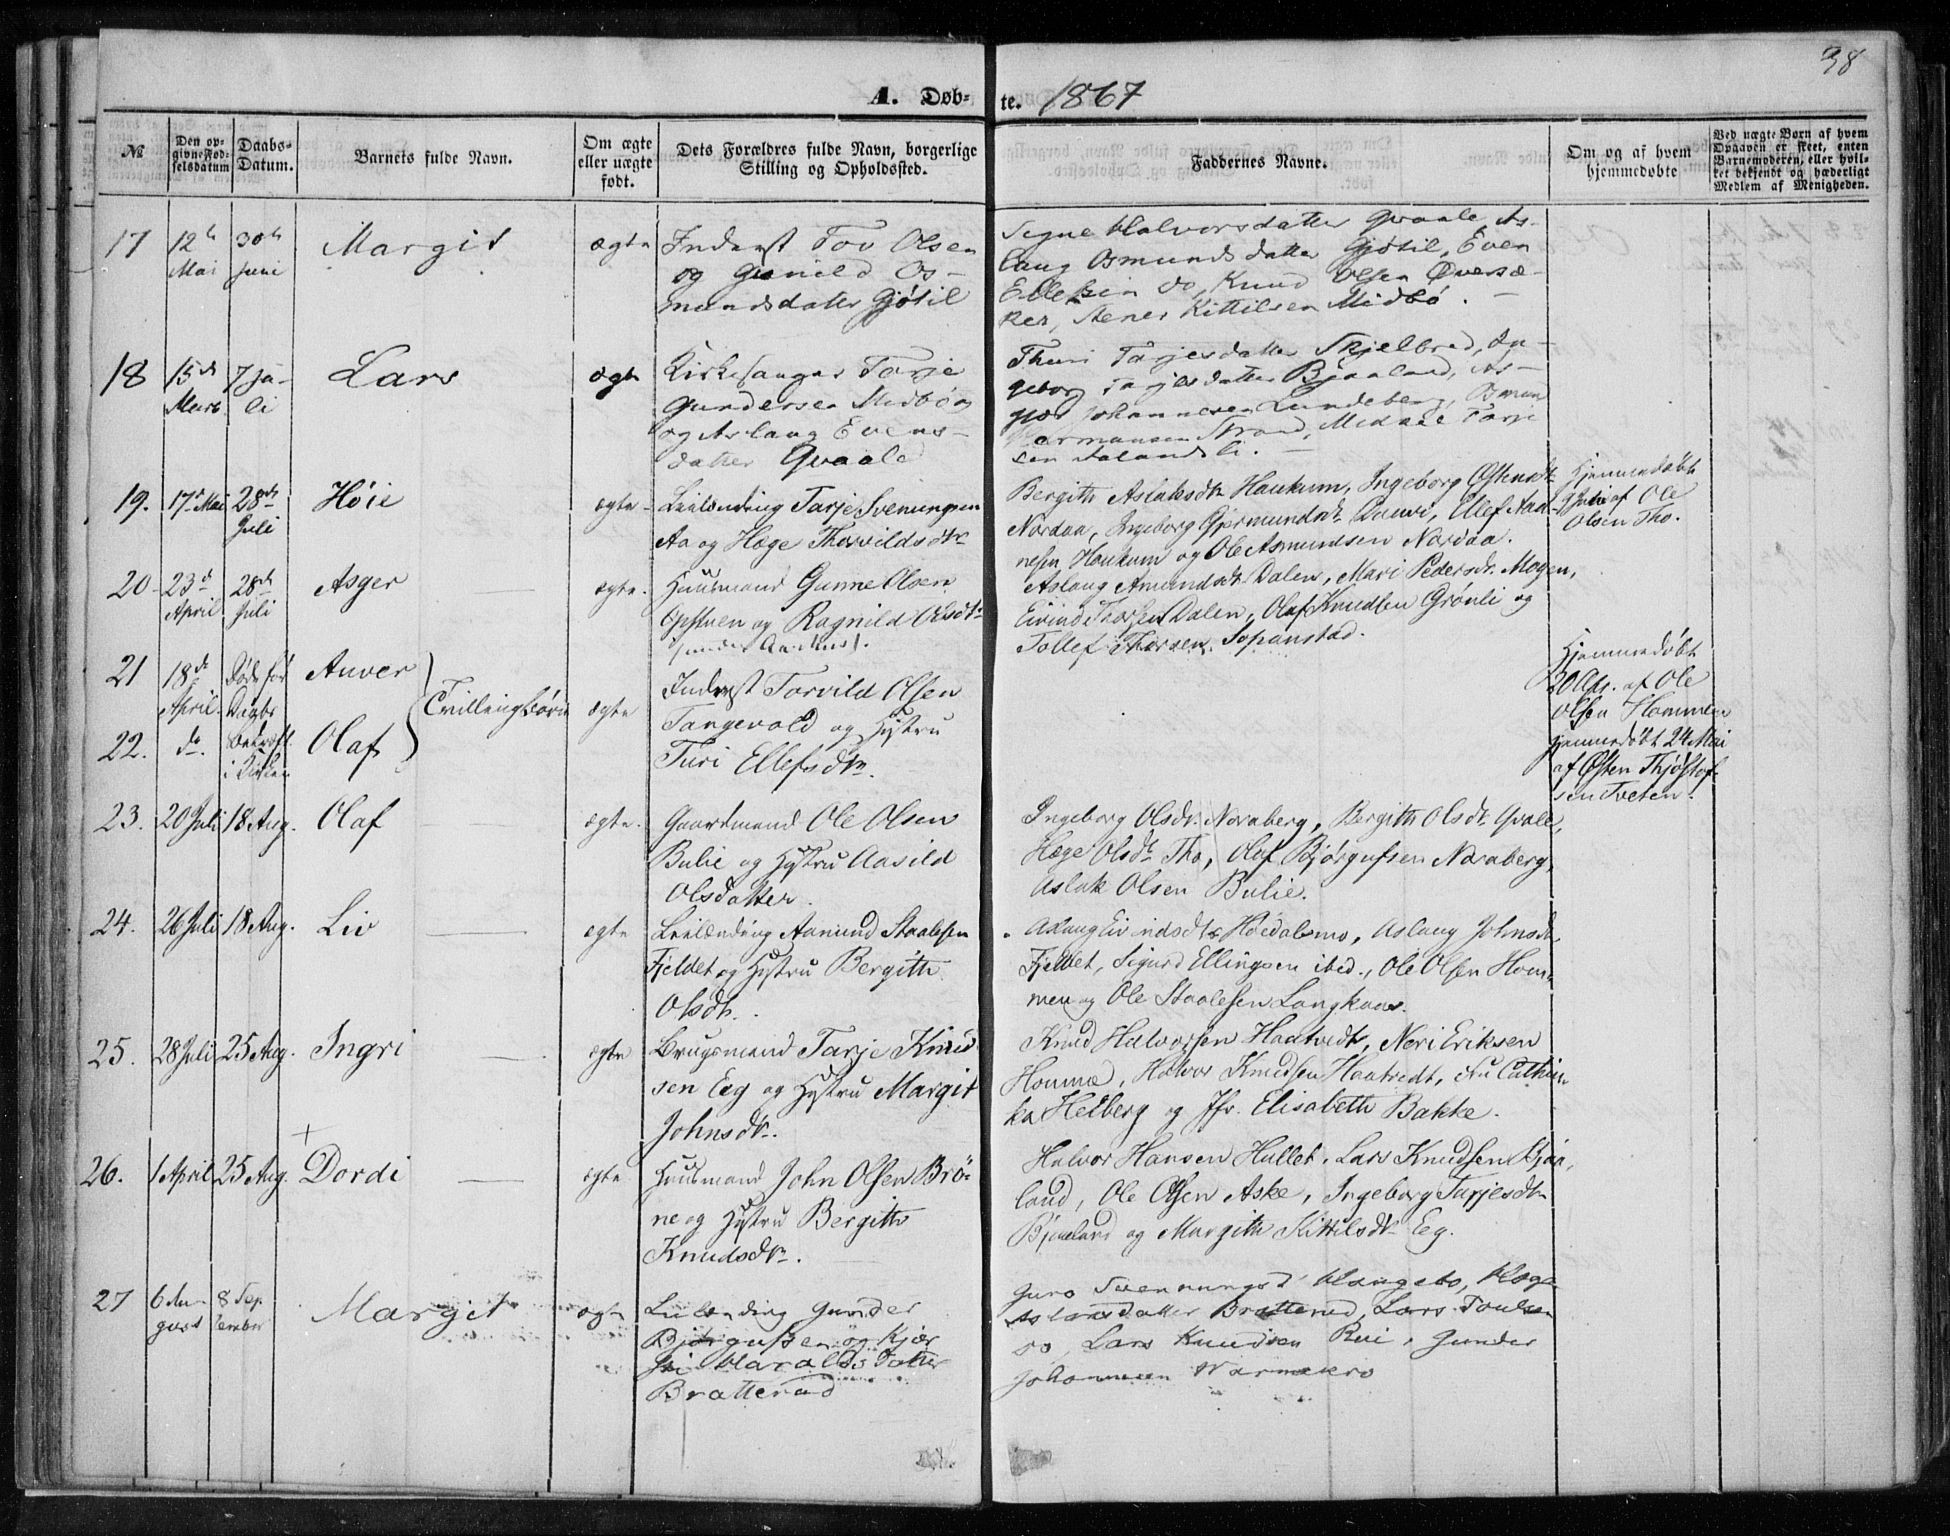 38
A. Døb-
te. 1867
№
Den op-
givne Fød-
selsdatum
Daabs-
Datum.
Barnets fulde Navn.
Om ægte
eller uægte
født.
Dets Forældres fulde Navn, borgerlige
Stilling og Opholdssted.
Faddernes Navne.
Om og af hvem
hjemmedøbte
Ved uægte Børn af hvem
Opgaven er skeet, enten
Barnemoderen, eller hvil-
ket bekjendt og hæderligt
Medlem af Menigheden.
17
12te
Mai
30te
Juni
Margit
ægte
Inderst Tov Olsen
og Gunild Os-
mundsdatter Gjøtil
Signe Halvorsdatter Qvaale, As-
laug Osmundsdatter Gjøtil, Even
Ellefsen do, Knud Olsen Øversæ-
ker, Kittilsen Midbø.
18
15de
Marts
7 Ju-
li
Lars
ægte
Kirkesanger Tarje
Gundersen Midbø
og Aslaug Evens-
datter Qvaale
Thuri Tarjesdatter Skjelbred, In-
geborg Tarjesdatter Bjaaland, As-
Johannesen Lundeberg, Osmun
Hermansen Strand, Tarje
sen Aalandsli.
19.
17de Mai
28de
Juli
Høie
ægte
Leilænding Tarje Sveinungsen
Aa og Hæge Thorvildsdtr
Bergith Aslaksdtr Haukum, Ingeborg Østensdtr
Nordaa, Ingeborg Gjermundsdtr Ellef Aad-
nesen Haukum og Ole Asmundsen Nordaa.
Hjemmedøbt
af Ole
Olsen Tho.
20
23de
April
28de
Juli
Asger
ægte.
Huusmand Gunne Olsen
Opstuen og Ragnild Olsdtr
Aslaug Amundsdtr Dalen, Mari Pedersdtr. Mogen,
Eivind Thorsen Dalen, Olaf Knudsen Grønli og
Tollef Thorsen
21
18de
April
Døde før
Daabs
Anver
Tvillingbørn
ægte
Inderst Torvild Olsen
Tangevald og Hustru
Turi Ellefsdtr.
Hjemmedøbt
20 Apr. af Ole
Olsen Hommen
22.
do.
i Kirken
Olaf
hjemmedøbt 24 Mai
af Østen Thjøstof-
sen Tveten.
23.
20 Juli
18 Aug.
Olaf
ægte.
Gaardmand Ole Olsen
Bulie og Hustru Aasild
Olsdatter.
Ingeborg Olsdtr. Noraberg, Bergith Olsdtr Qvale,
Hæge Olsdtr Tho, Olaf Bjørgufsen Noraberg,
Aslak Olsen Bulie.
24.
26 Juli
18 Aug.
Liv
ægte
Leilænding Aamund Staalesen
Fjeldet og Hustru Bergith
Olsdtr.
Aslaug Eivindsdtr Høidalsmo, Aslaug Johnsdtr
Fjeldet, Sigurd Ellingsen ibid., Ole Olsen Hom-
men og Ole Staalesen Langkaas.
25.
28 Juli
25 Aug.
Ingri
ægte
Brugsmand Tarje Knud-
sen Eeg og Hustru Margit
Johnsdtr.
Knud Halvorsen Haatvedt, Neri Eriksen
Homme, Halvor Knudsen Haatvedt, Fru Cathin-
ka Helberg og Jfr. Elisabeth Bakke.
26.
1 April
25 Aug.
+
Dordi
ægte
Huusmand John Olsen Brø-
ne og Hustru Bergith
Knudsdtr.
Halvor Hansen Hullet, Lars Knudsen Bjaa-
land, Ole Olsen Aske, Ingeborg Tarjesdtr
Bjaaland og Margith Kittilsdtr Eeg.
27
6 Au-
gust
8 Sep
tember
Margit
ægte
Leilænding Gunder
Bjørgufsen og Kjær
Haraldsdatter
Bratterud
Guro Svennungsd Haugebo, Hæge
Aslaksdatter Bratterud, Lars
do, Lars Knudsen Rui, Gunder
Johannesen